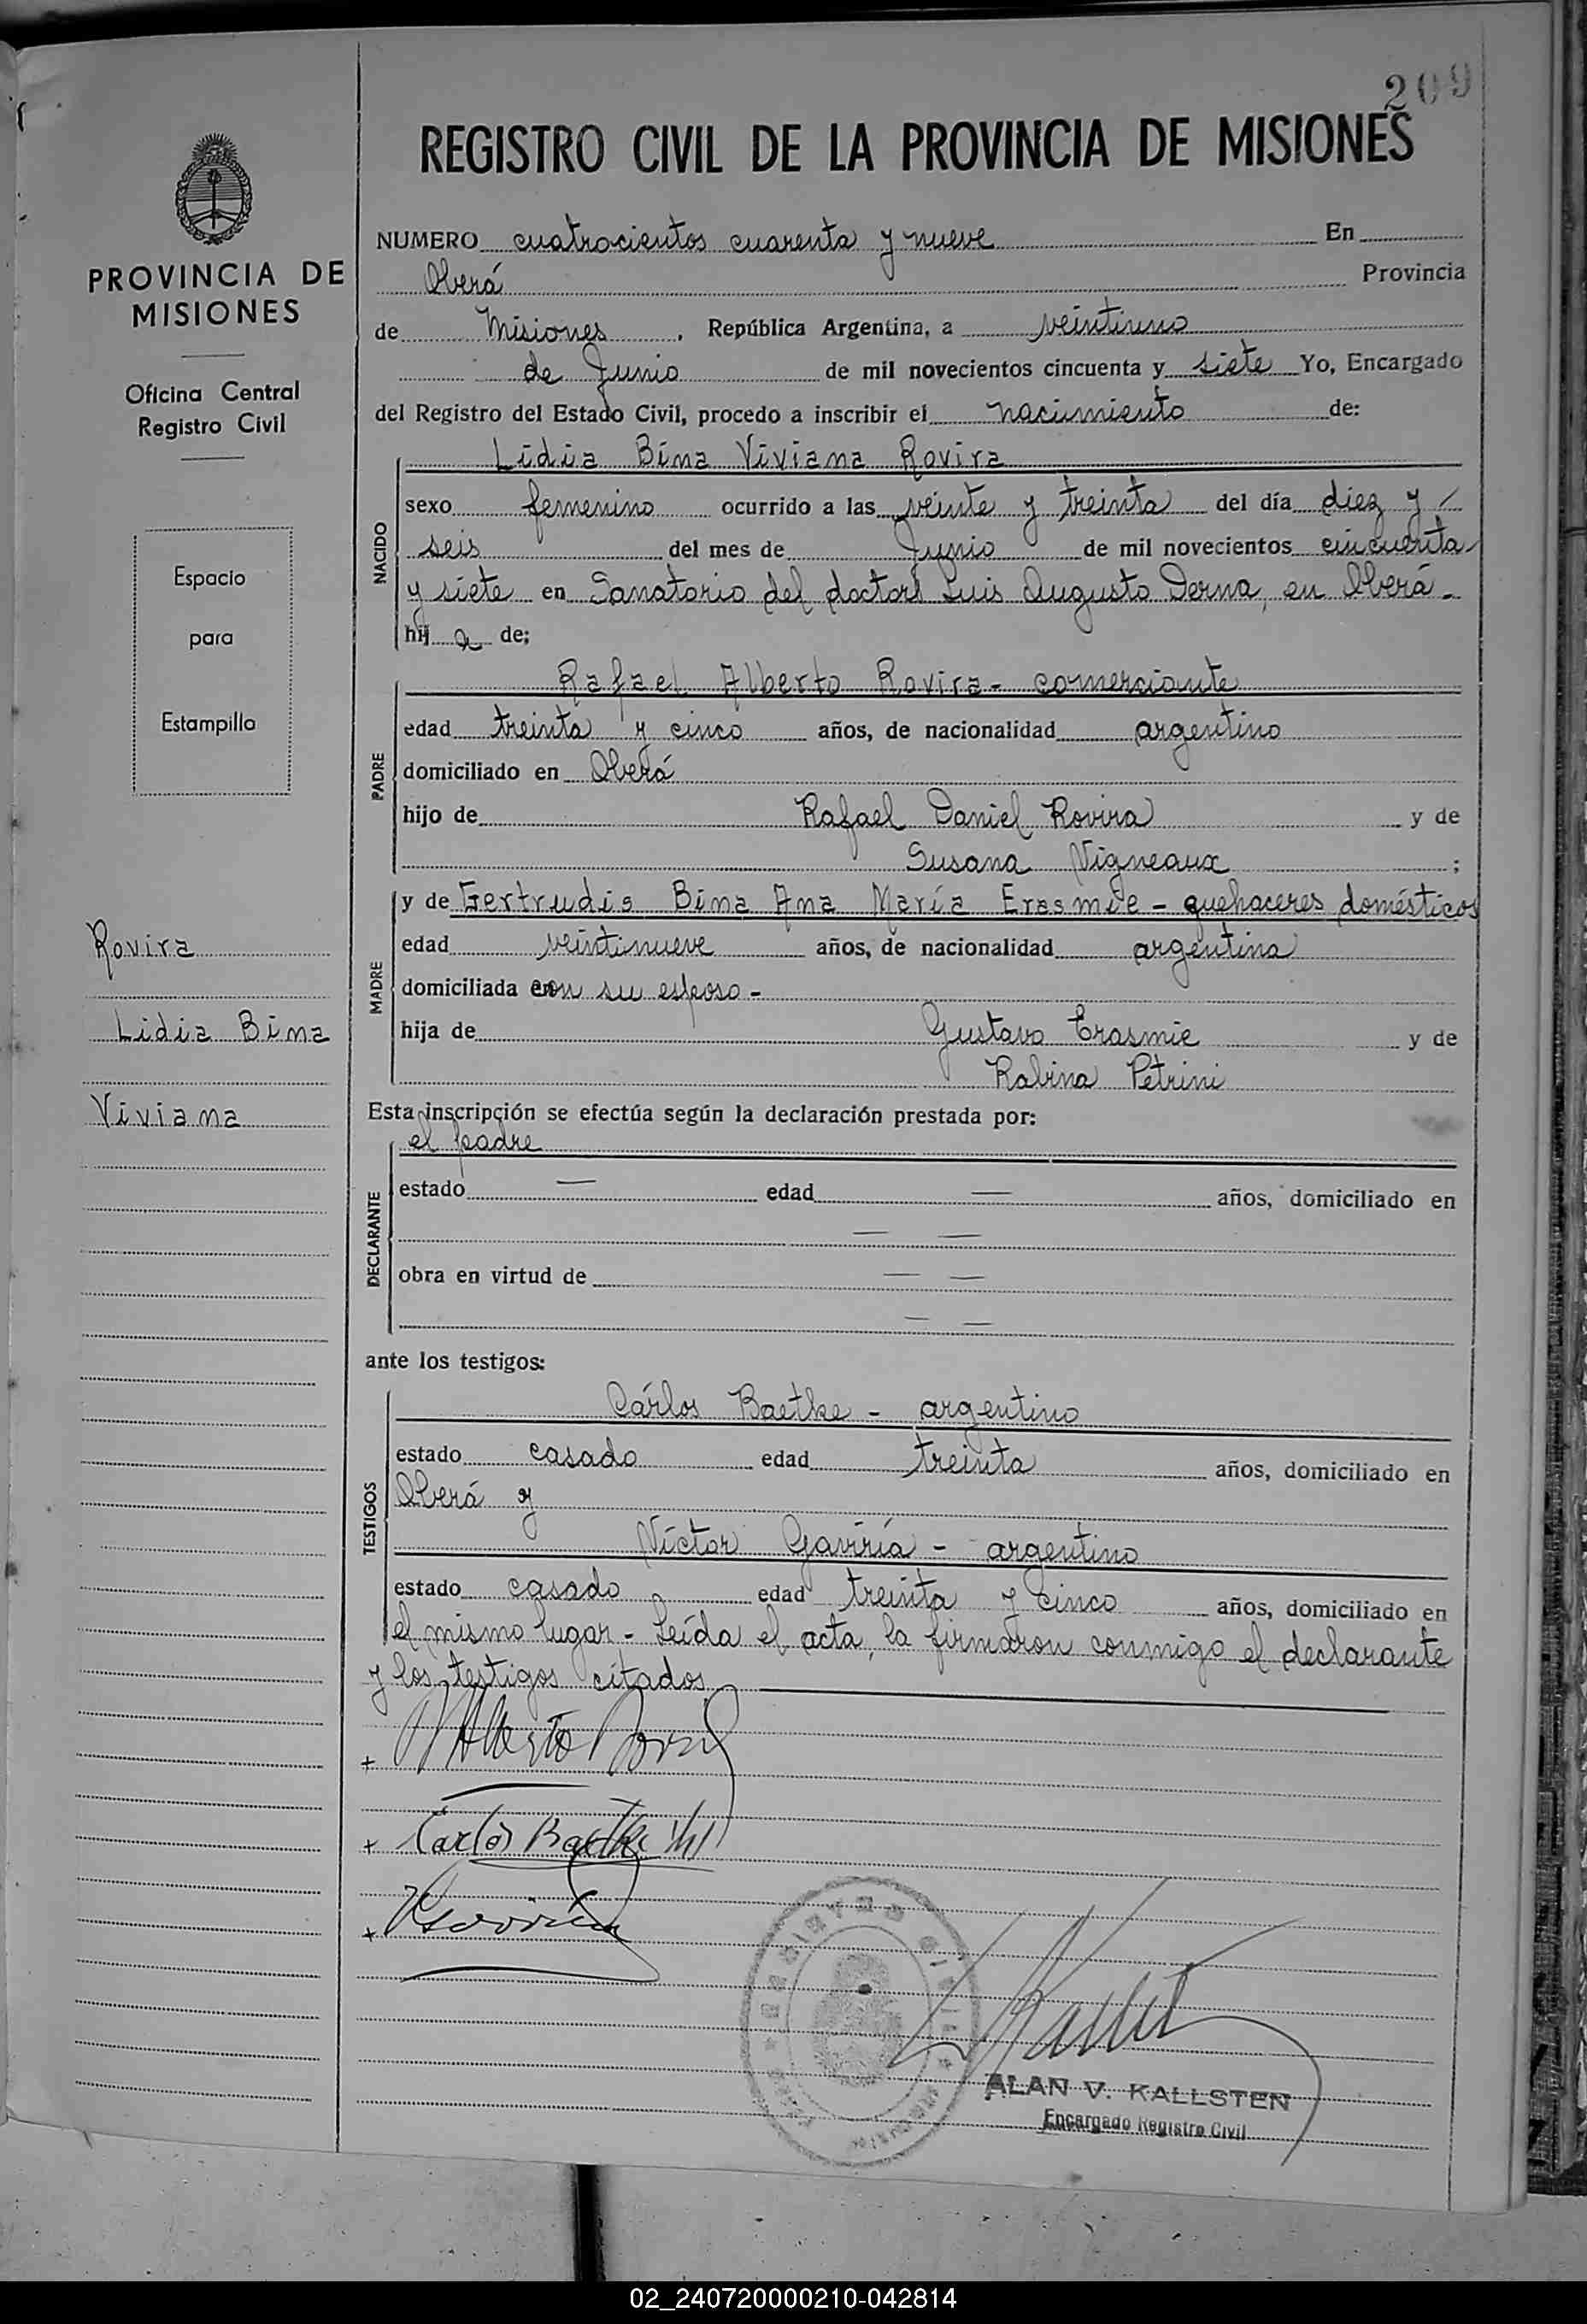 209
REGISTRO CIVIL DE LA PROVINCIA DE MISIONES
PROVINCIA DE
MISIONES
Oficina Central
Registro Civil
Espacio
para
Estampilla
Rovira
Lidia Bina
Viviana
NUMERO cuatrocientos cuarenta y nueve En
Oberá Provincia
de Misiones, República Argentina, a veintiuno
de Junio de mil novecientos cincuenta y siete Yo, Encargado
del Registro del Estado Civil, procedo a inscribir el nacimiento de:
NACIDO
Lidia Bina Viviana Rovira
sexo femenino ocurrido a las veinte y treinta del día diez y
seis del mes de Junio de mil novecientos cincuenta
y siete en Sanatorio del doctor Luis Augusto Derna, en Oberá-
hij a de;
PADRE
Rafael Alberto Rovira - comerciante
edad treinta y cinco años, de nacionalidad argentino
domiciliado en Oberá
hijo de Rafael Daniel Rovira y de
Susana Vigneaux ;
MADRE
y de Gertrudis Bina Ana María Erasmie - quehaceres domésticos
edad veintinueve años, de nacionalidad argentina
domiciliada con su esposo -
hija de Gustavo Erasmie y de
Rabina Petrini
Esta inscripción se efectúa según la declaración prestada por:
DECLARANTE
el padre
estado — edad — años, domiciliado en
— —
obra en virtud de — —
— —
ante los testigos:
TESTIGOS
Cárlos Baethke - argentino
estado casado edad treinta años, domiciliado en
Oberá y
Víctor Gaviría - argentino
estado casado edad treinta y cinco años, domiciliado en
el mismo lugar - Leída el acta, la firmaron conmigo el declarante
y los testigos citados
Carlos Baethke
ALAN V. KALLSTEN
Encargado Registro Civil
02_240720000210-042814